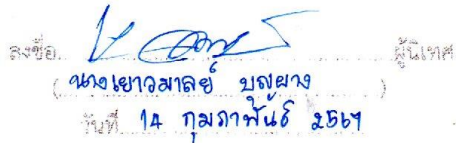 ลงชื่อ ผู้นิเทศ
(นางเยาวมาลย์ บุญผาง)
วันที่ 14 กุมภาพันธ์ 2567